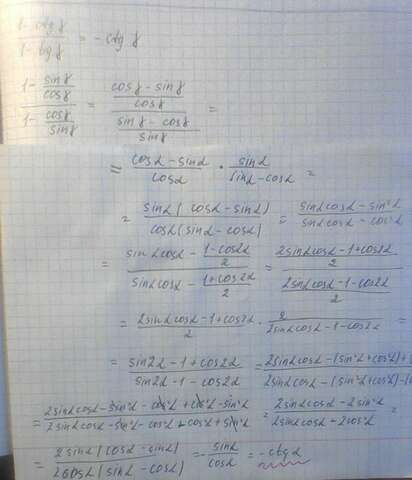 1 - ctg γ / 1 - tg γ = - ctg γ
(1 - sin γ / cos γ) / (1 - cos γ / sin γ) = ((cos γ - sin γ) / cos γ) / ((sin γ - cos γ) / sin γ) =
= (cosα - sinα) / cosα · sinα / (sinα - cosα) =
= sinα (cosα - sinα) / cosα (sinα - cosα) = (sinα cosα - sin²α) / (sinα cosα - cos²α)
= (sinα cosα - (1 - cos2α) / 2) / (sinα cosα - (1 + cos2α) / 2) = ((2sinα cosα - 1 + cos2α) / 2) / ((2sinα cosα - 1 - cos2α) / 2)
= (2sinα cosα - 1 + cos2α) / 2 · 2 / (2sinα cosα - 1 - cos2α) =
= (sin2α - 1 + cos2α) / (sin2α - 1 - cos2α) = (2sinα cosα - (sin²α + cos²α) + / (2sinα cosα - (sin²α + cos²α) - (
= (2sinα cosα - sin²α - cos²α + cos²α - sin²α) / (2sinα cosα - sin²α - cos²α - cos²α + sin²α) = (2sinα cosα - 2sin²α) / (2sinα cosα - 2cos²α) =
= 2sinα (cosα - sinα) / 2cosα (sinα - cosα) = - sinα / cosα = - ctg α